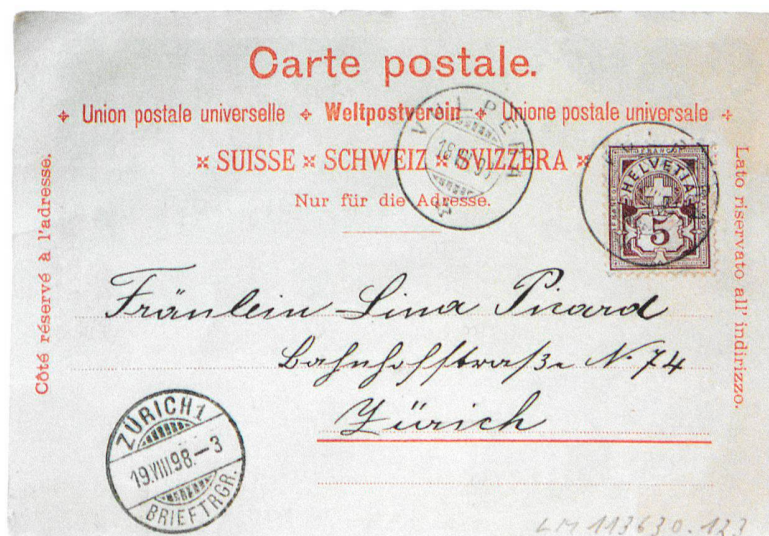 Carte postale.
+ Union postale universelle + Weltpostverein + Unione postale universale +
× SUISSE × SCHWEIZ × SVIZZERA ×
Nur für die Adresse.
Côté réservé à l'adresse.
Lato riservato all' indirizzo.
HELVETIA
5
Fräulein Lina Picard
Bahnhofstraße N. 74
Zürich
ZÜRICH 1
19.VIII.98.–3
BRIEFTRGR.
LM 113630.123